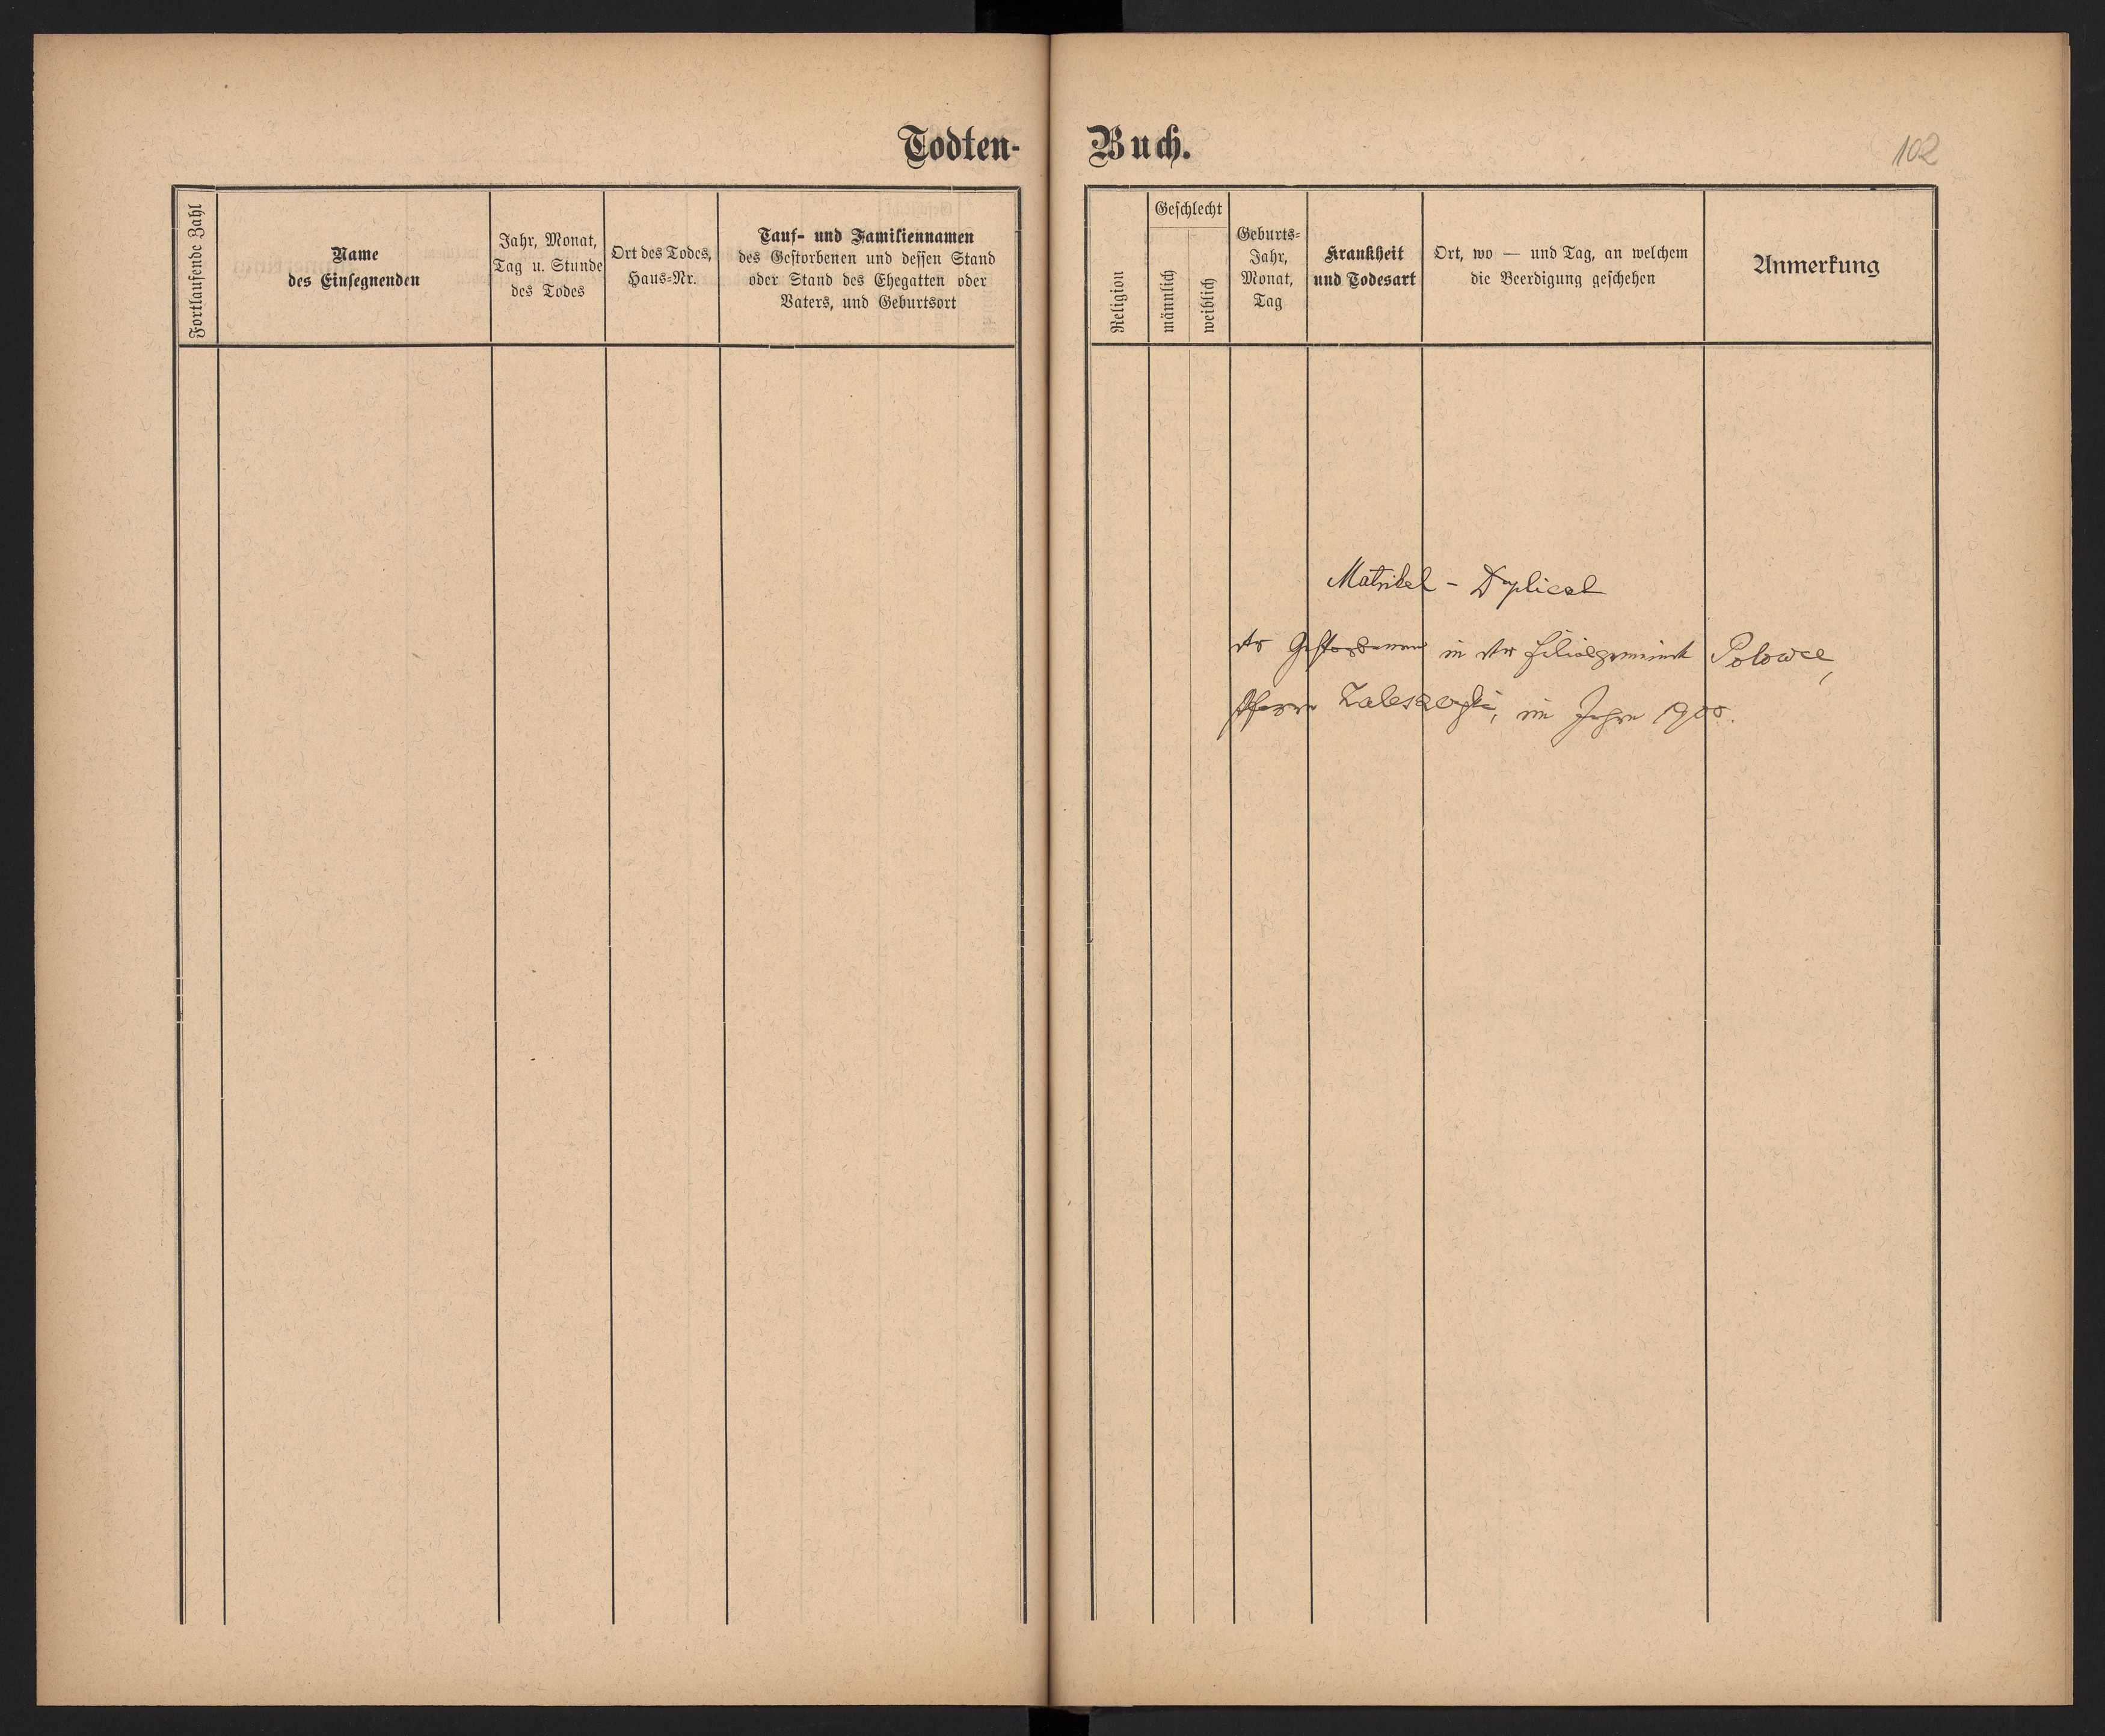 Todten-
Fortlaufende Zahl
Name
des Einsegnenden
Jahr, Monat,
Tag u. Stunde
des Todes
Ort des Todes,
Haus-Nr.
Tauf- und Familiennamen
des Gestorbenen und dessen Stand
oder Stand des Ehegatten oder
Vaters, und Geburtsort
Buch.
102
Religion
Geschlecht
männlich
weiblich
Geburts-
Jahr,
Monat,
Tag
Krankheit
und Todesart
Ort, wo — und Tag, an welchem
die Beerdigung geschehen
Anmerkung
Matrikel - Duplicat
der Gestorbenen in der Filialgemeinde Polowce,
Pfarre Zaleszczyki, im Jahre 1900.